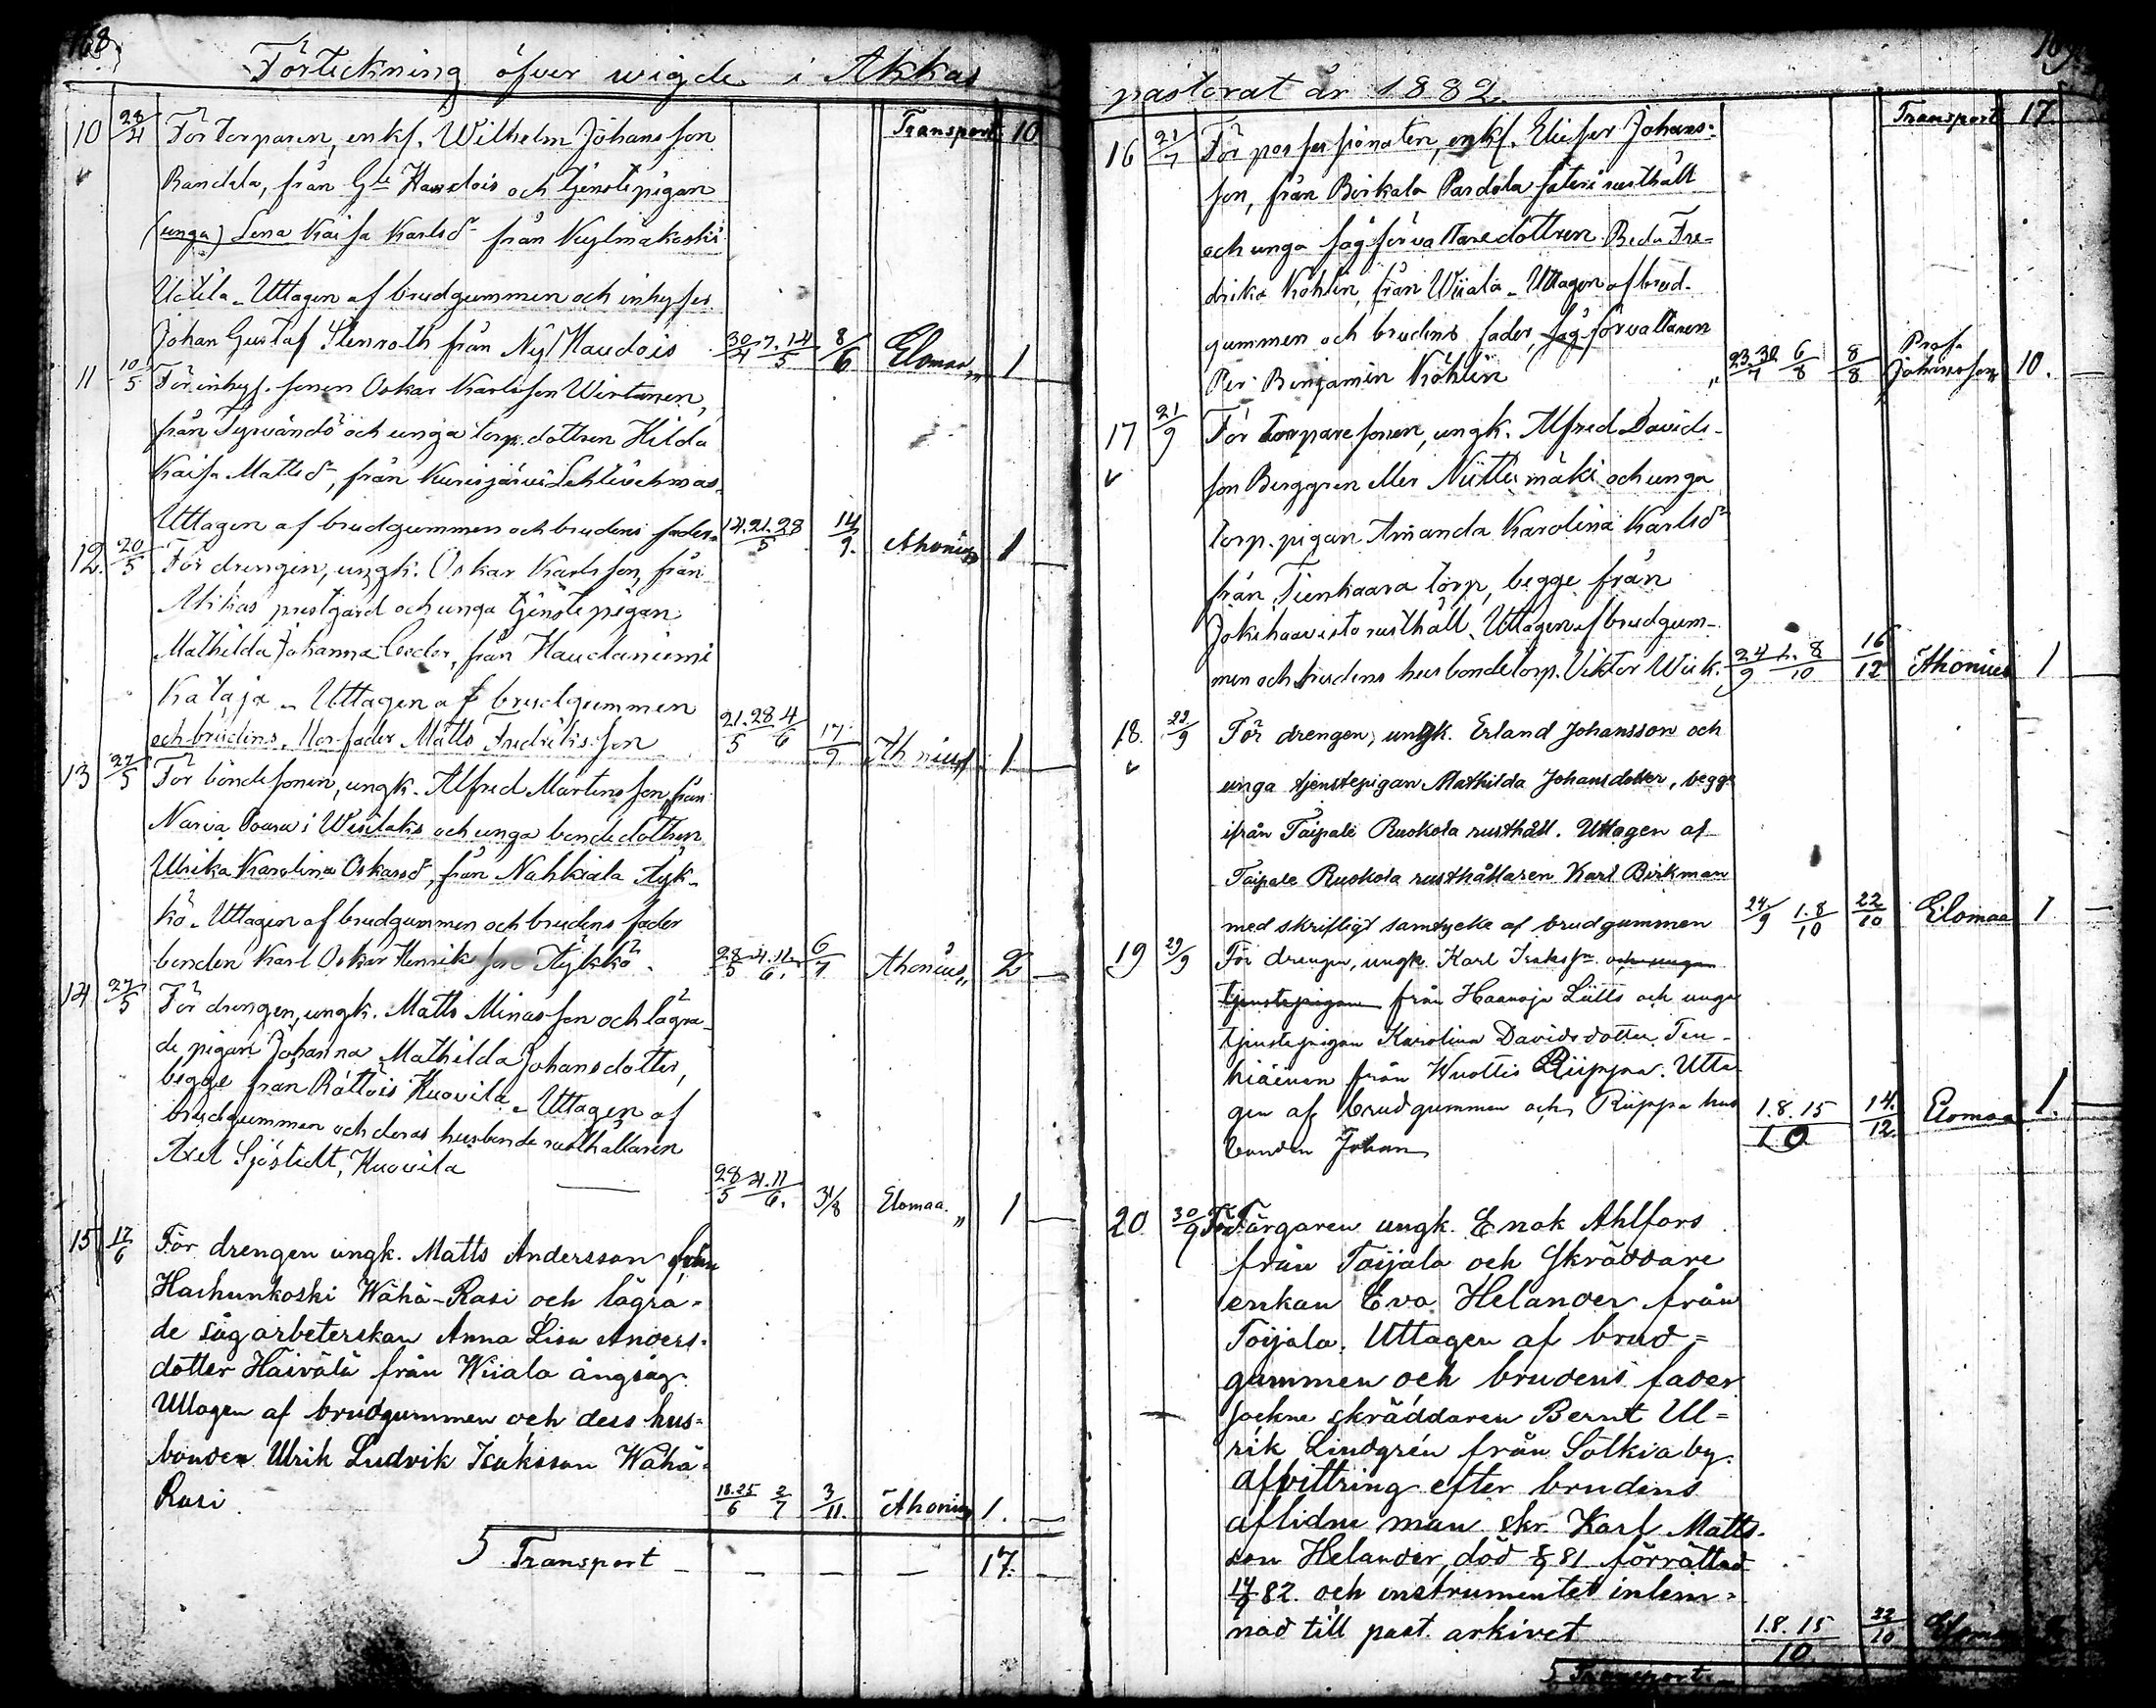 168.
Förteckning öfver wigde i Akkas
Transport 10.
10 28/4 För torparen, enkl. Wilhelm Johansson
Randala, från Gla Haudois och tjenstepigan
(unga) Lena Kaisa Karlsdr från Kylmäkoski
Uotila. Uttagen af brudgummen och inhyses
Johan Gustaf Stenroth från Ny Haudois 30/4 7.14/5 8/6 Elomaa 1
11 10/5 För inhys. sonen Oskar Karlsson Wirtanen,
från Tyrvändö och unga torp. dottren Hilda
Kaisa Mattsdr, från Kurisjärvi
Uttagen af brudgummen och brudens fader. 14.21.28/5 14/9. Ahonius 1
12. 20/5 För drengen, ungk. Oskar Karlsson, från
Akkas prestgård och unga tjenstepigan
Mathilda Johanna Ceder, från Haudaniemi
Kataja. Uttagen af brudgummen
och brudens Morfader Matts Fredriksson 21.28/5 4/6 17/9 Ahonius 1
13 27/5 För bondesonen, ungk. Alfred Martinsson, från
Narva i Wesilaks och unga bondedottren
Ulrika Karolina Oskarsdr, från Nahkiala Äyk-
kö. Uttagen af brudgummen och brudens fader
bonden Karl Oskar Henriksson Äykkö. 28/5 4.11/6. 6/7 Ahonius 2
14 27/5 För drengen, ungk. Matts Minasson och lägra-
de pigan Johanna Mathilda Johansdotter,
begge från Rättöis Kuovila. Uttagen af
brudgummen och deras husbonde rusthållaren
Axel Sjöstedt, Kuovila 28/5 4.11/6. 31/8 Elomaa. 1
15 17/6 För drengen ungk. Matts Andersson från
Haihunkoski Wähä-Rasi och lägra-
de sågarbeterskan Anna Lisa Anders-
dotter Häivälä från Wiiala ångsåg.
Uttagen af brudgummen och dess hus-
bonden Ulrik Ludvik Isaksson Wähä-
Rasi. 18.25/6 2/7 3/11. Ahonius 1.
Transport 17.
169.
pastorat år 1882.
Transport 17.
16 21/7 För possessionaten, enkl. Elieser Johans-
son, från Birkala Pardola säteri rusthåll
och unga sågförvaltaredottren Beda Fre-
drika Köhlin, från Wiiala. Uttagen af brud-
gummen och brudens fader, sågförvaltaren
Per Benjamin Köhlin 23.30/7 6/8 8/8 Prof. Johansson 10.
17 21/9 För torparesonen, ungk. Alfred Davids-
son Berggren eller Niittumäki och unga
torp. pigan Amanda Karolina Karlsdr
från Tienhaara torp, begge från
Jokihaavisto rusthåll. Uttagen af brudgum-
men och brudens husbonde torp. Viktor Wiik. 24/9 1.8/10 16/12 Ahonius 1
18. 22/9 För drengen, ungk. Erland Johansson och
unga tjenstepigan Mathilda Johansdotter, begge
ifrån Taipale Ruokola rusthåll. Uttagen af
Taipale Ruokola rusthållaren Karl Birkman
med skrifligt samtycke af brudgummen 24/9 1.8/10 22/10 Elomaa 1
19 29/9 För drengen, ungk. Karl Isaksson och unga
tjenstepigan från Haanoja Lülls och unga
tjenstepigan Karolina Davidsdotter
från Wuoltis Riippa. Utta-
gen af brudgummen och Riippa hus
bonden Johan 1.8.15/10 14./12. Elomaa 1.
20 30/9 För Färgaren ungk. Enok Ahlfors
från Toijala och skräddare
enkan Eva Helander från
Toijala. Uttagen af brud-
gummen och brudens fader
sockne skräddaren Bernt Ul-
rik Lindgrén från Sotkia by.
afvittring efter brudens
aflidne man skr. Karl Matts-
son Helander, död 81 förrättad
14/9 82. och instrumentet inlem-
nad till past. arkivet 1.8.15/10 22/10 Elomaa
Transport